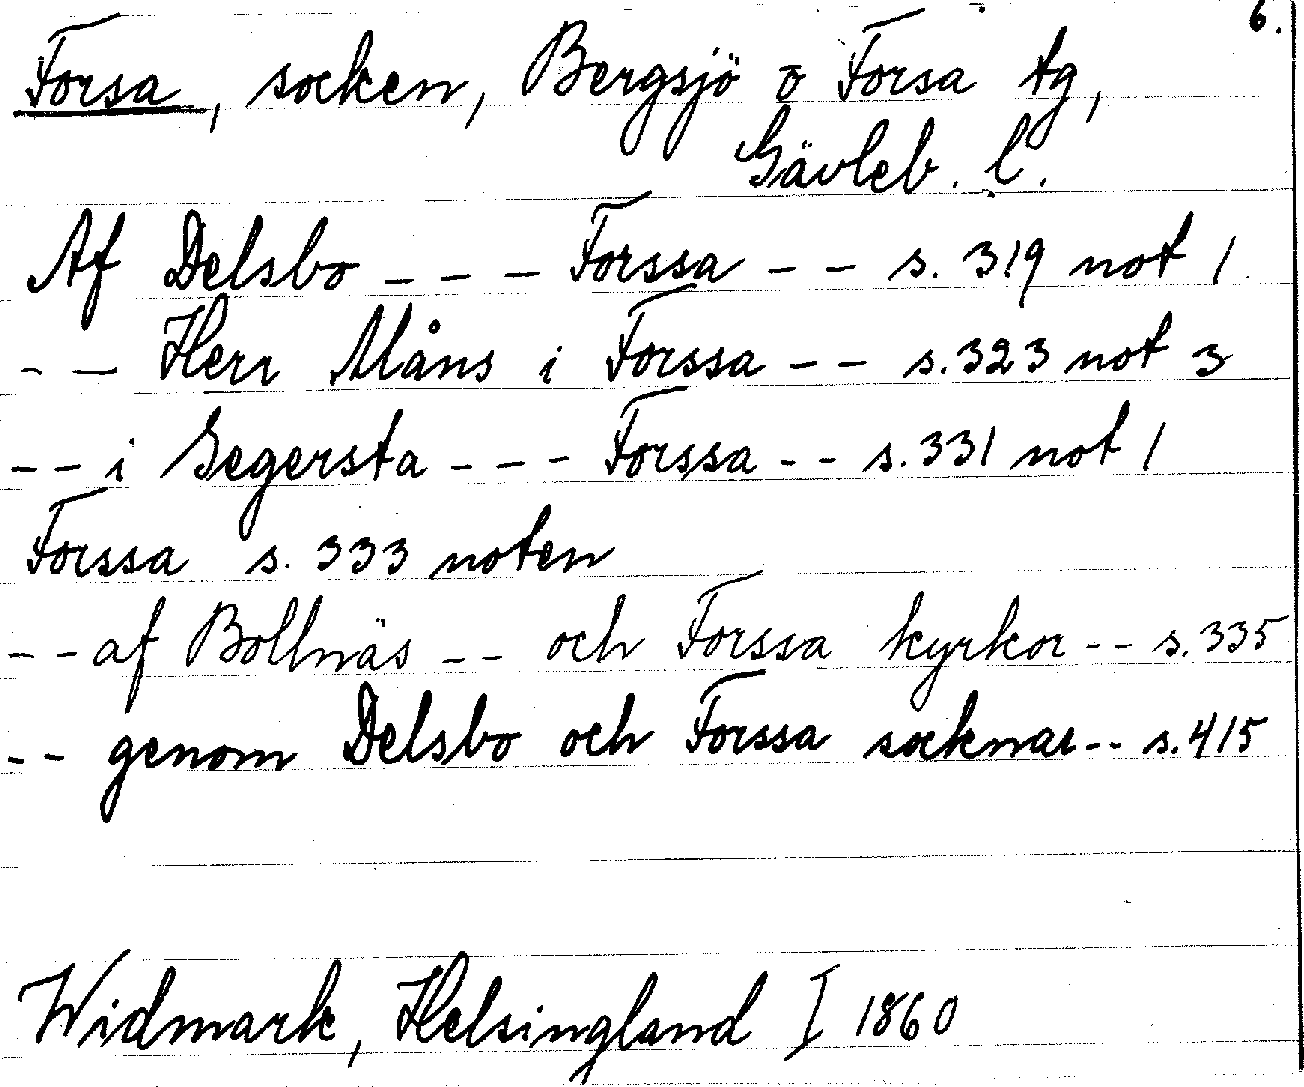 6.
Forsa, socken, Bergsjö o Forsa tg,
Gävleb. l.
Af Delsbo - - - Forssa - - s. 319 not 1
- - Herr Måns i Forssa - - s. 323 not 3
- - i Segersta - - - Forssa - - s. 331 not 1
Forssa s. 333 noten
- - af Bollnäs - - och Forssa kyrkor - - s. 335
- - genom Delsbo och Forssa socknar - - s. 415
Widmark, Helsingland I 1860